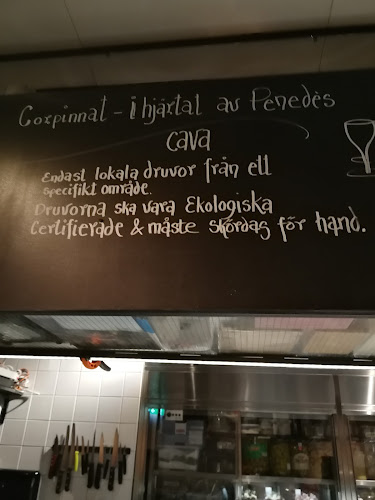 Corpinnat - i hjärtat av Penedès
cava
Endast lokala druvor från ett
specifikt område.
Druvorna ska vara Ekologiska
Certifierade & måste skördas för hand.